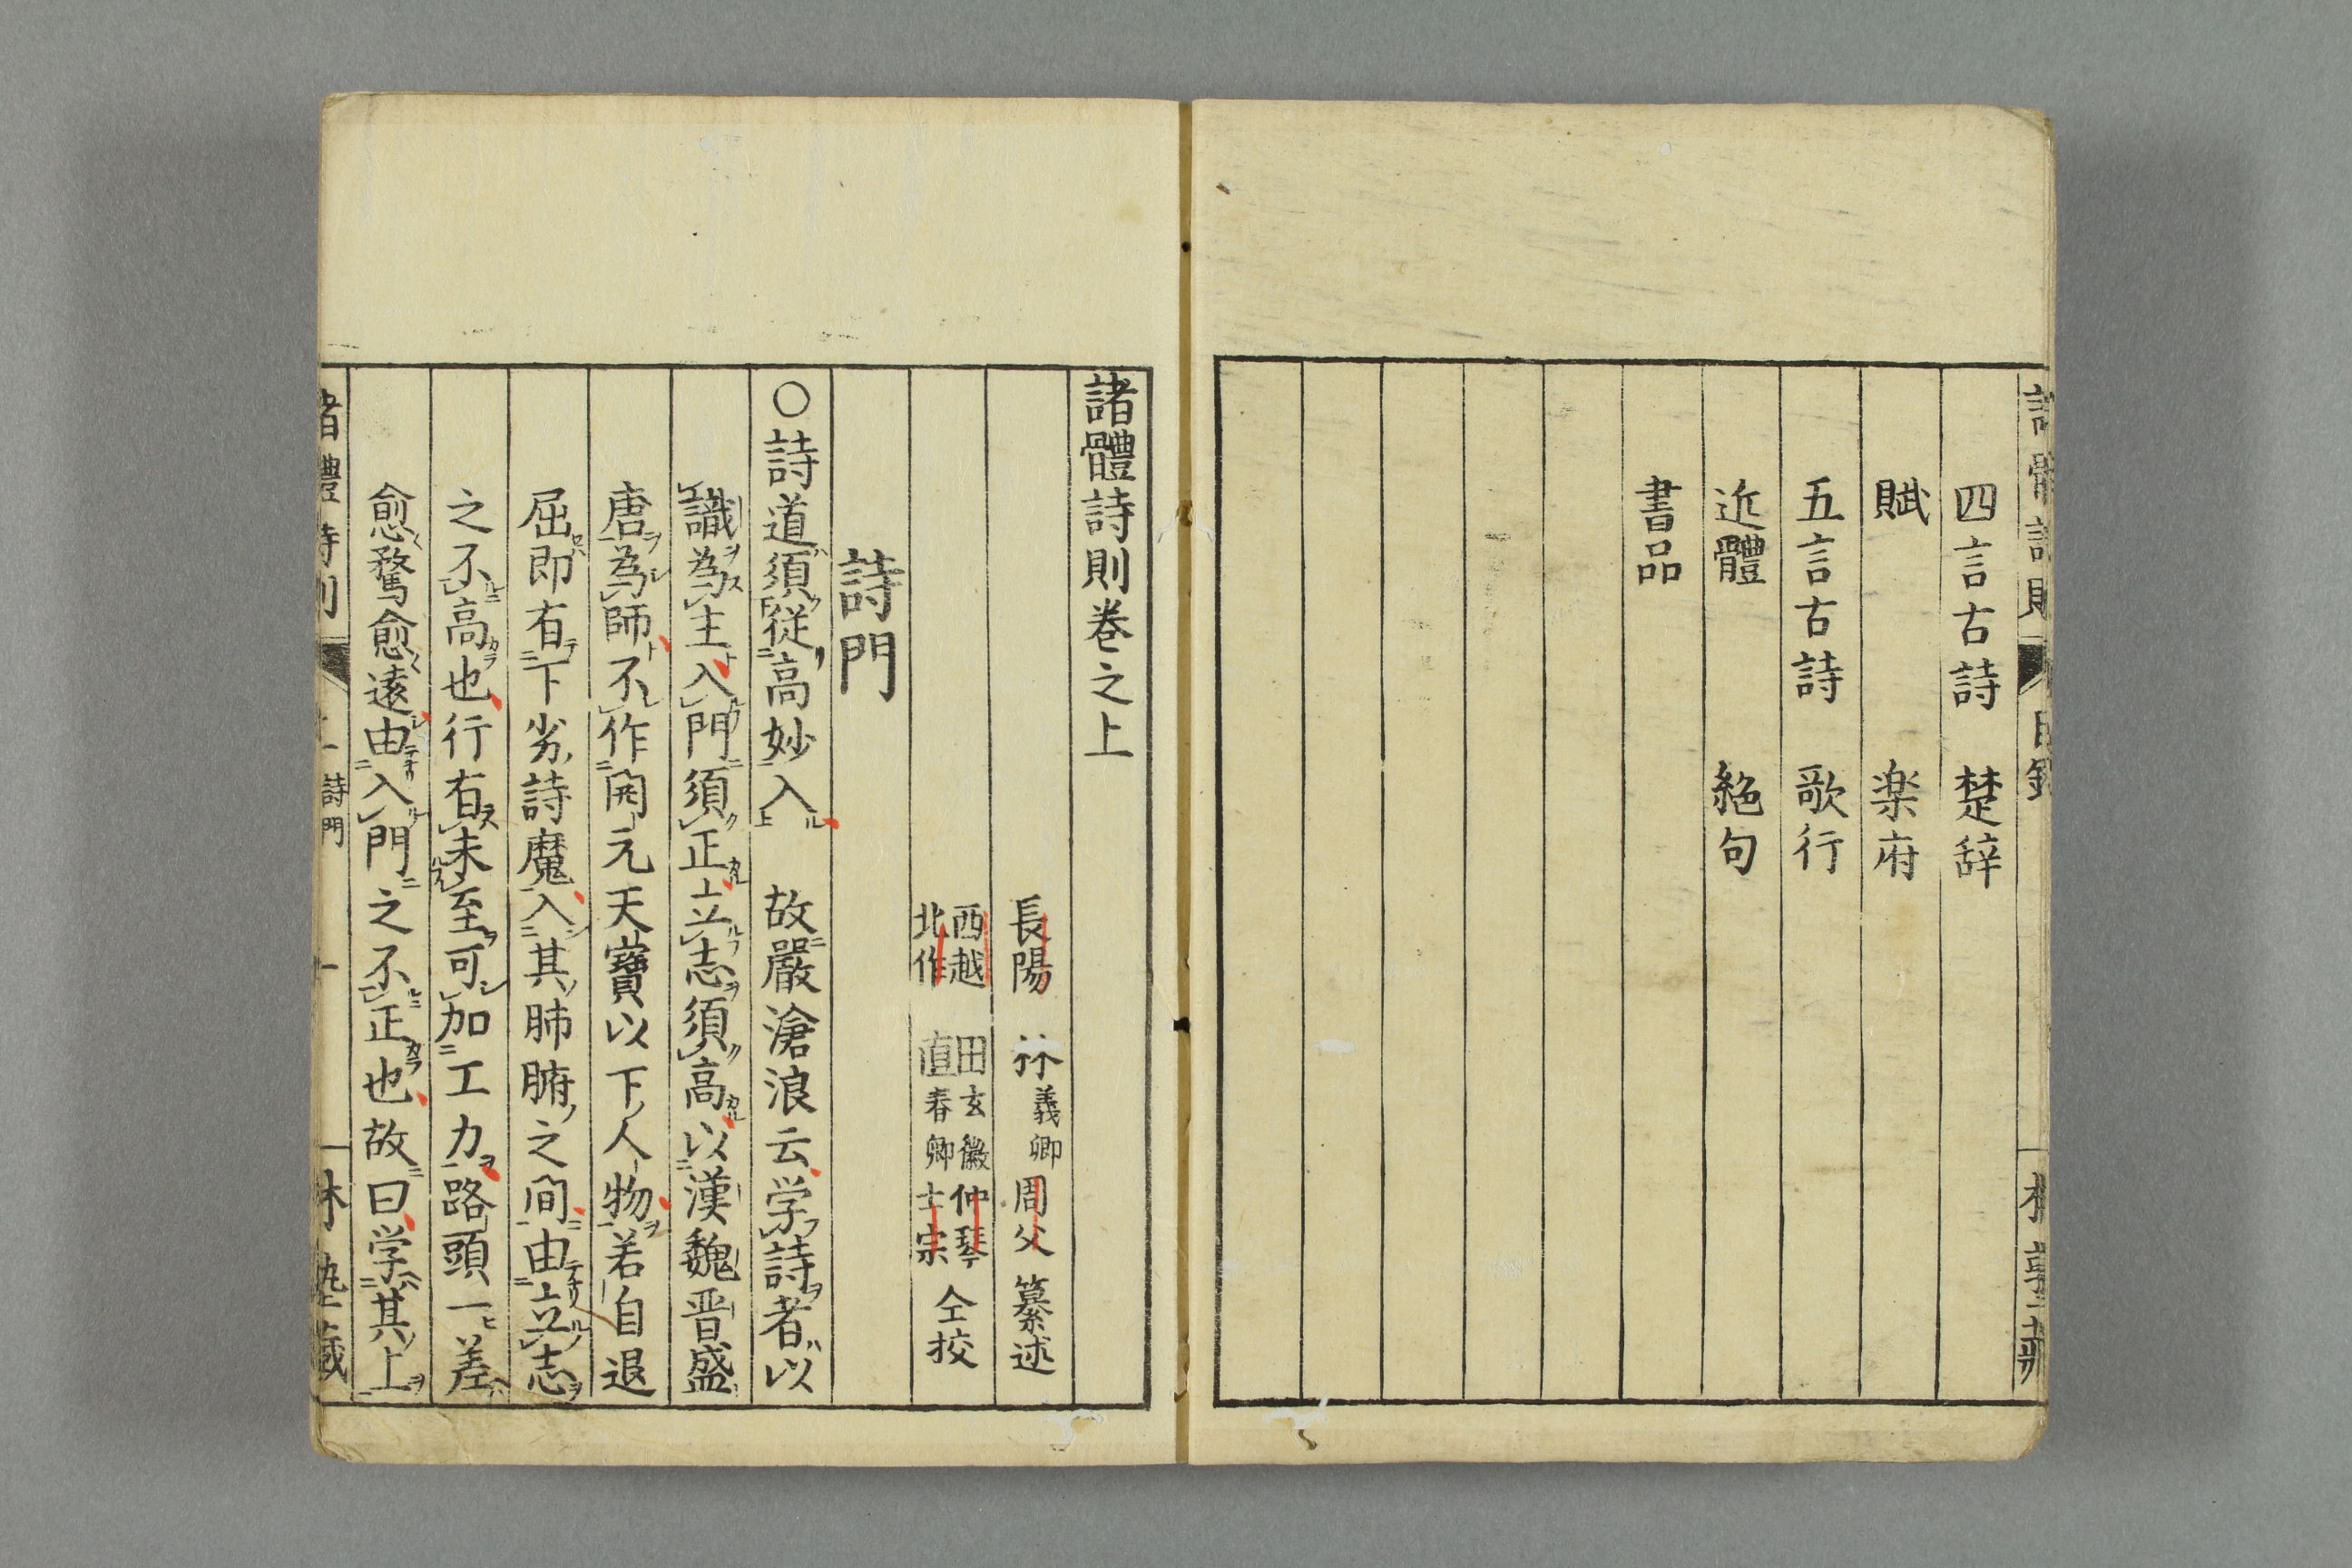 四言古詩 楚辞
賦 楽府
五言古詩 歌行
近體 絶句
書品
諸體詩則巻之上
長陽 林義卿周父 纂述
西越 田玄徽仲琴
北作 直春卿士宗
仝挍
詩門
○詩道須從高妙入 故嚴滄浪云学詩者以
識為主入門須正立志須高以漢魏晋盛
唐為師不作開元天寶以下人物若自退
屈即有下劣詩魔入其肺腑之間由立志
之不高也行有未至可加工力路頭一差
愈騖愈遠由入門之不正也故曰学其上
詩門